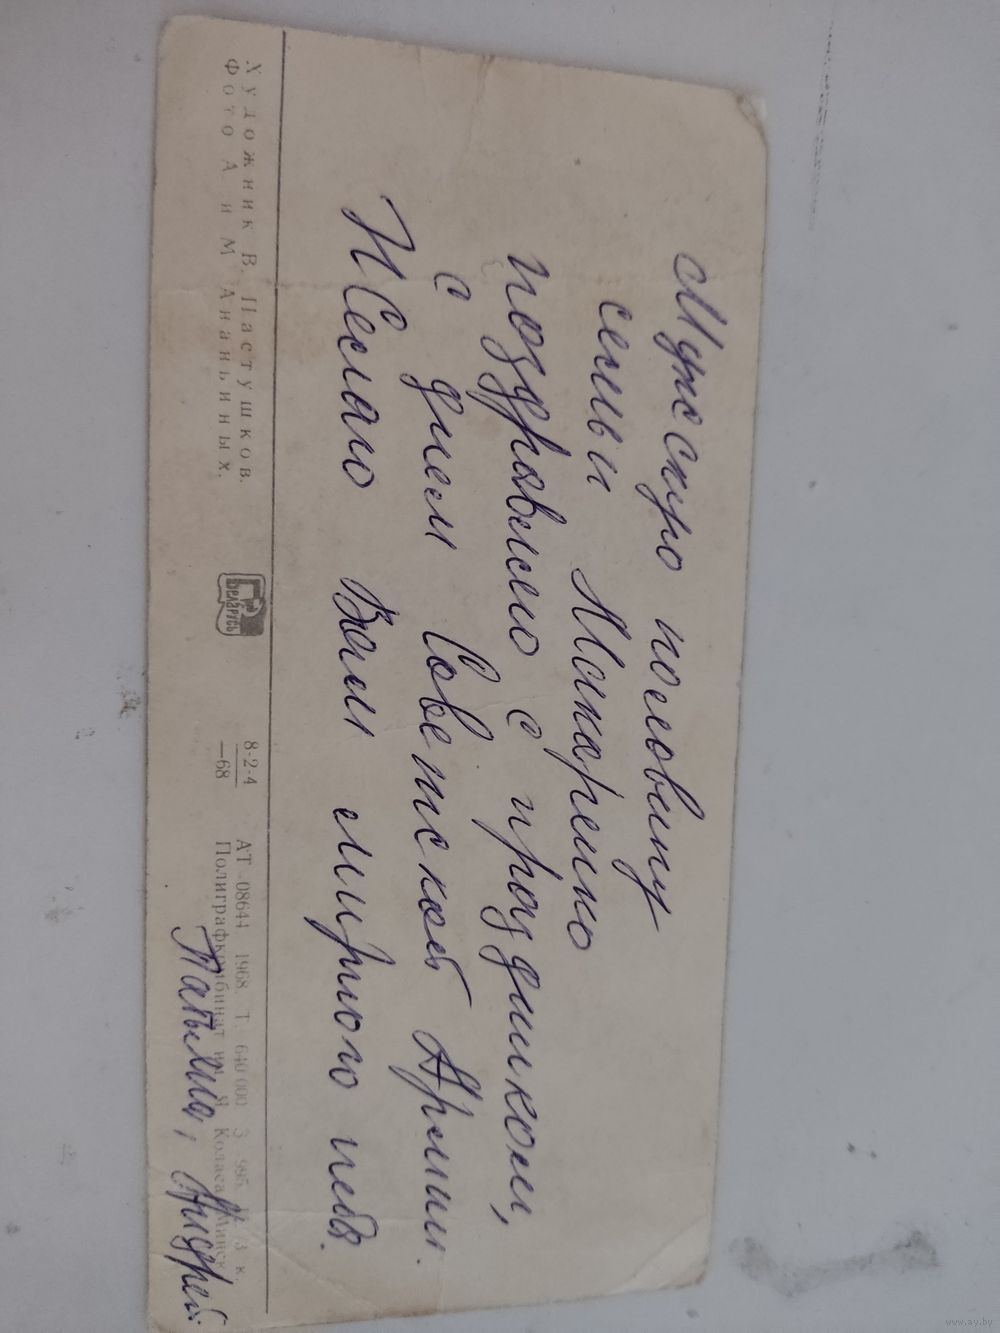 Мужскую половину
семьи Макаренко
поздравляю с праздником,
с днем Советской Армии.
Желаю Вам мирного неба.
Татьяна, Андрей
Художник В. Пастушков.
Фото А и М Ананьиных.
БЕЛАРУСЬ
8-2-4
—68
АТ 08644 1968. Т. 640 000 З 995 Ц. 3 к.
Полиграфкомбинат им. Я Коласа Минск
www.ay.by